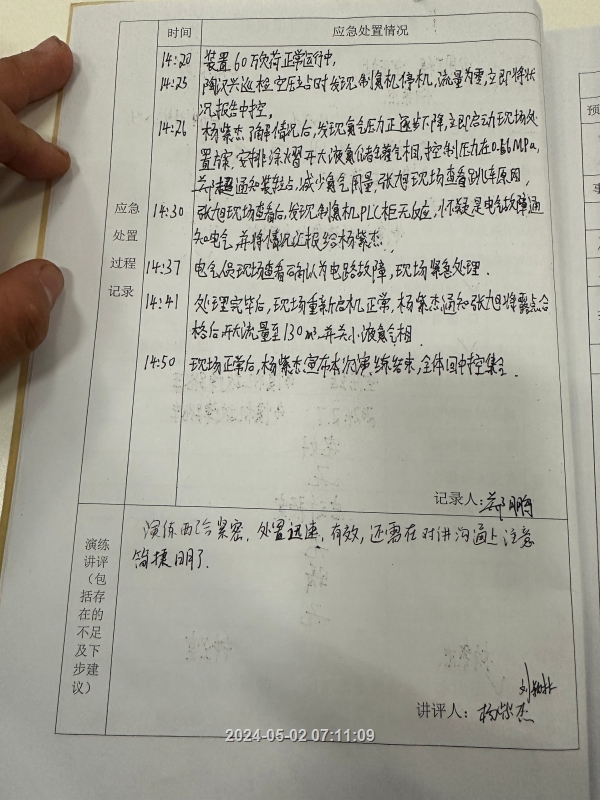 时间 应急处置情况
14:20 装置60万负荷正常运行中,
14:25 陶汉兴巡检空压站时发现制氮机停机,流量为零,立即将状
况报告中控,
14:26 杨紫杰了解情况后,发现氮气压力正逐步下降,立即启动现场处
置方案,安排涂水習开大液氮储罐气相,控制压力在0.66MPa,
超通知装转岗,减少氮气用量,张旭现场查看跳车原因,
14:30 张旭现场查看后,发现制氮机PLC柜无反应,怀疑是电气故障通
知电气,并将情况汇报给杨紫杰,
14:37 电气人员现场查看确认为电路故障,现场紧急处理.
14:41 处理完毕后,现场重新启机正常,杨紫杰通知张旭将露点合
格后开大流量至130m³,并关小液氮气相
14:50 现场正常后,杨紫杰宣布本次演练结束,全体回中控集合
应急
处置
过程
记录
记录人:鹏
演练
讲评
(包
括存
在的
不足
及下
步建
议)
演练配合紧密,处置迅速,有效,还需在对讲沟通上注意
简捷明了.
讲评人:杨紫杰
2024-05-02 07:11:09
预
事